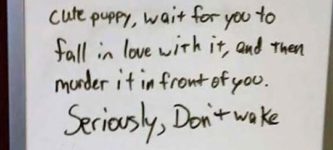 cute puppy, wait for you to
fall in love with it, and then
murder it in front of you.
Seriously, Don't wake